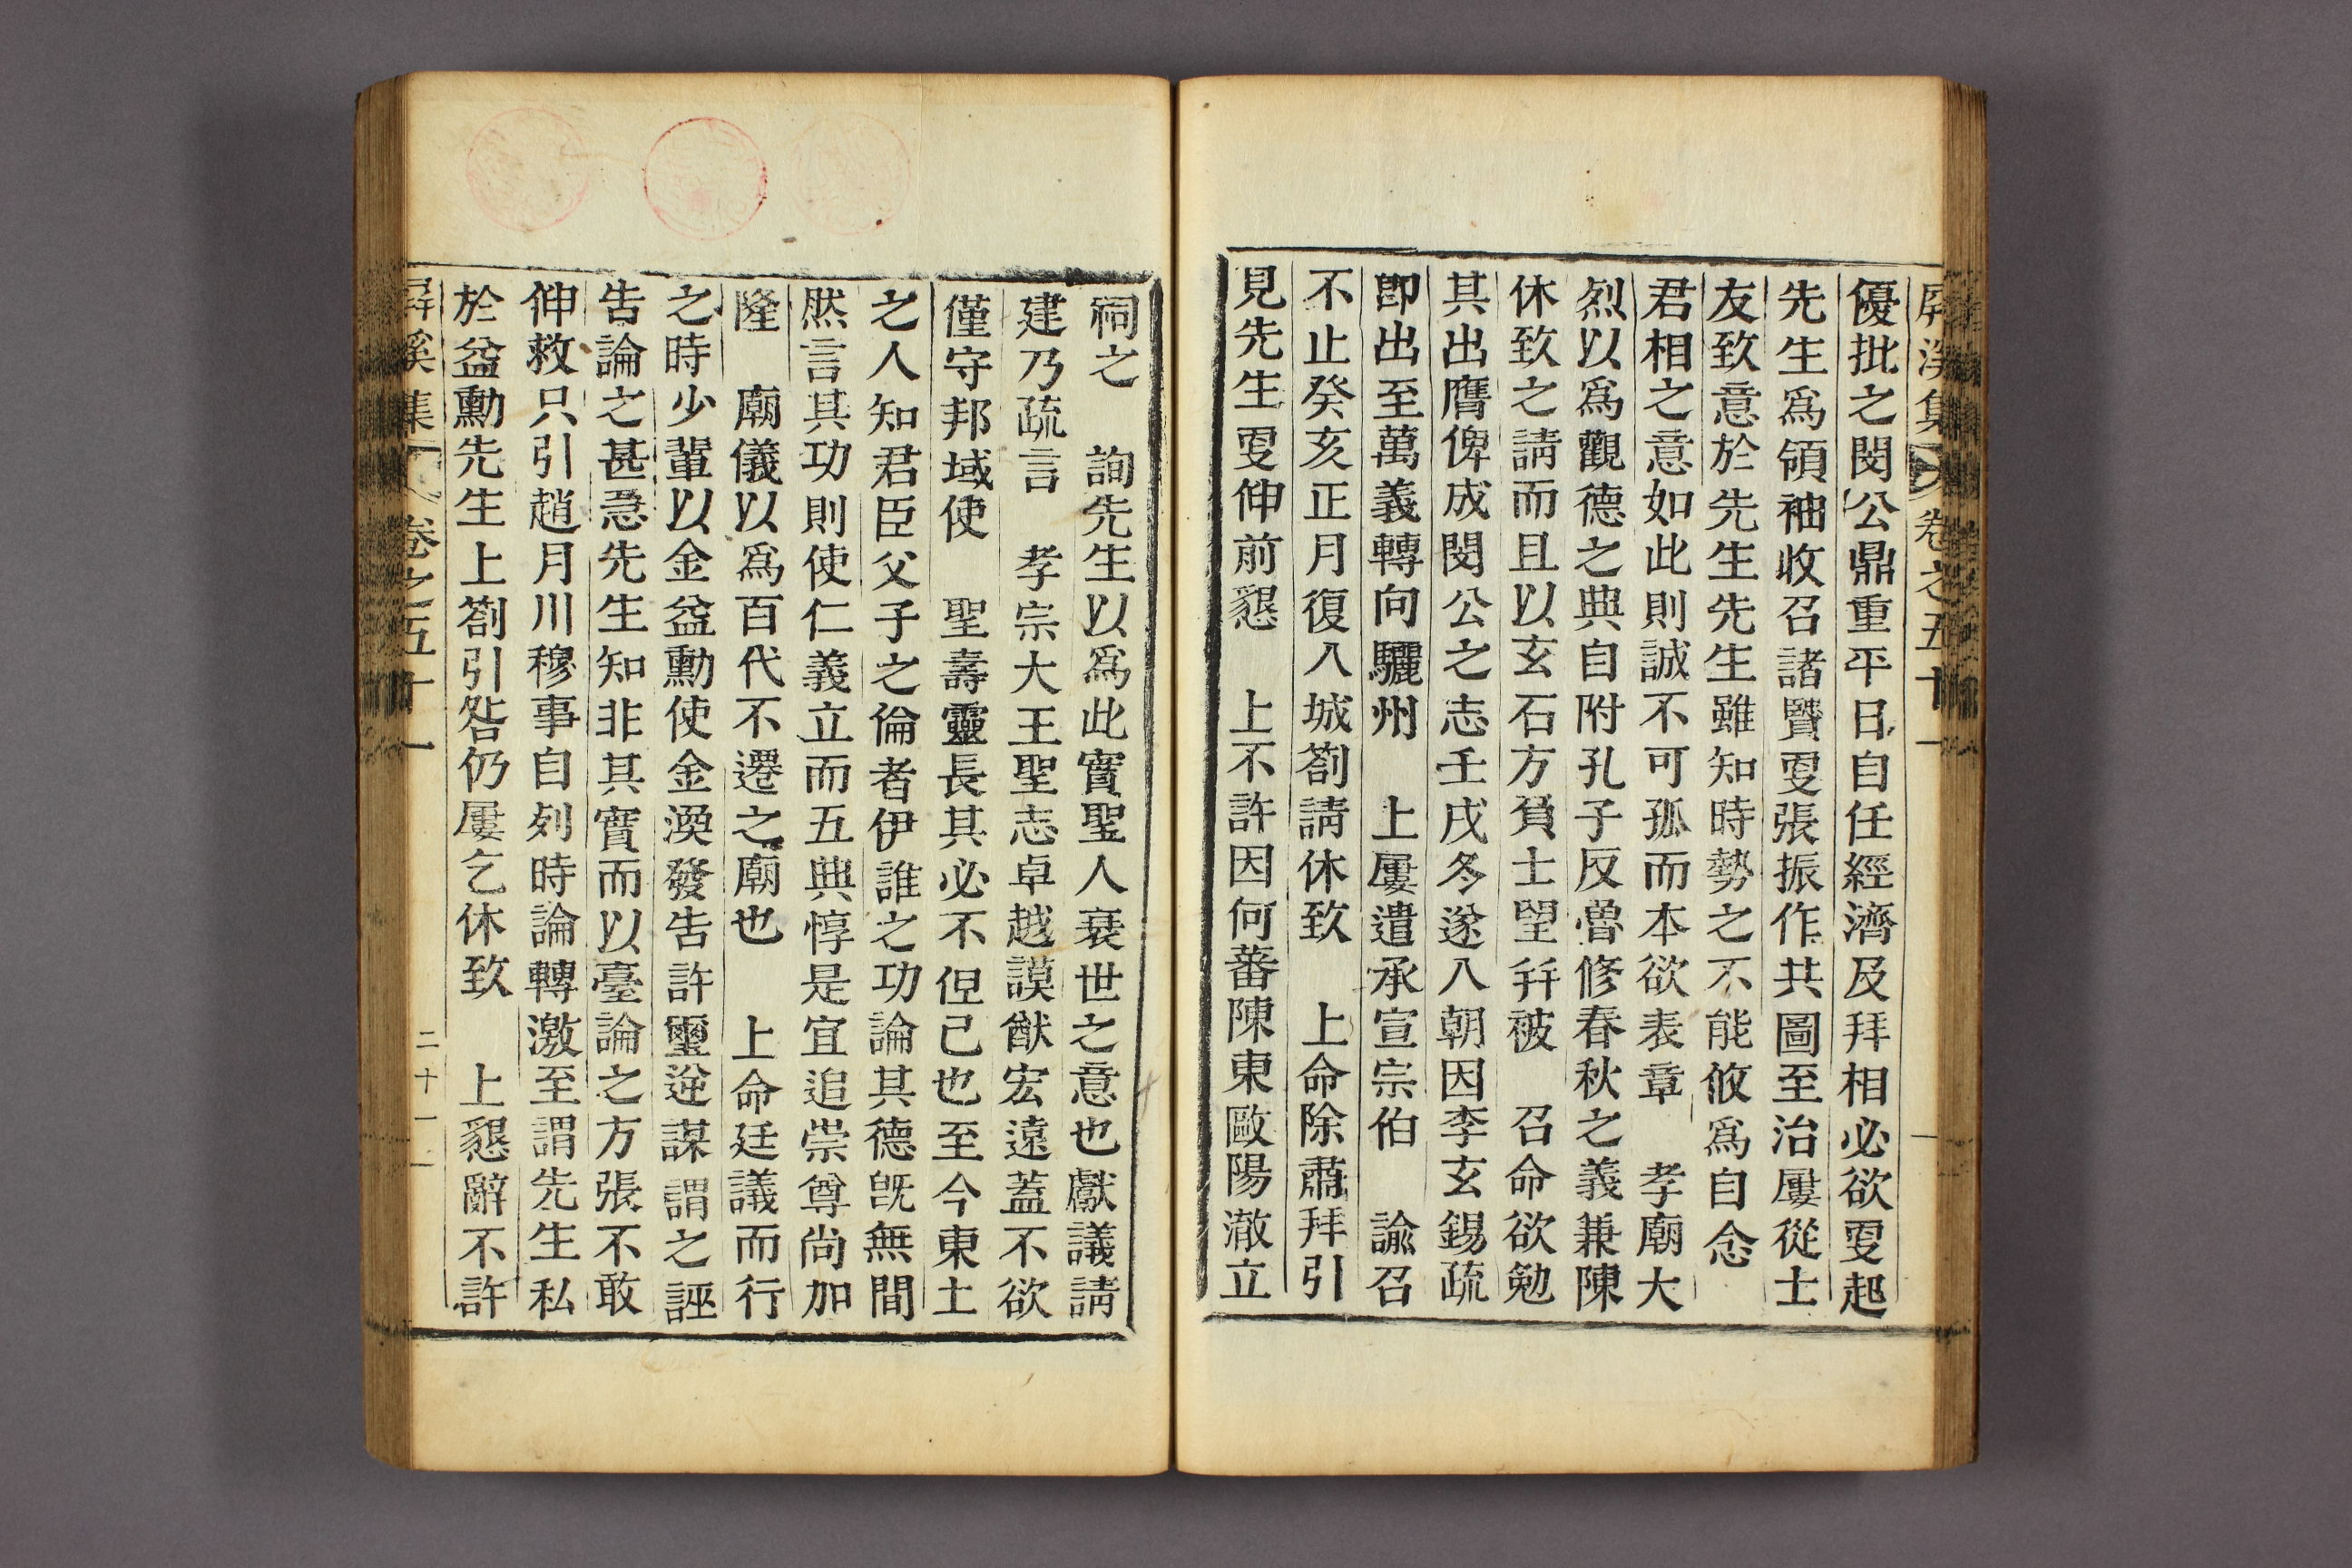 屛溪集 卷之五十一
優批之閔公鼎重平日自任經濟及拜相必欲㪅起
先生爲領袖收召諸賢㪅張振作共圖至治屢從士
友致意於先生先生雖知時勢之不能攸爲自念
君相之意如此則誠不可孤而本欲表章　孝廟大
烈以爲觀德之典自附孔子反魯修春秋之義兼陳
休致之請而且以玄石方負士望幷被　召命欲勉
其出膺俾成閔公之志壬戌冬遂入朝因李玄錫疏
卽出至萬義轉向驪州　上屢遣承宣宗伯　諭召
不止癸亥正月復入城箚請休致　上命除肅拜引
見先生㪅伸前懇　上不許因何蕃陳東歐陽澈立
祠之　詢先生以爲此實聖人衰世之意也獻議請
建乃疏言　孝宗大王聖志卓越謨猷宏遠蓋不欲
僅守邦域使　聖壽靈長其必不但已也至今東土
之人知君臣父子之倫者伊誰之功論其德旣無間
然言其功則使仁義立而五典惇是宜追崇尊尙加
隆　廟儀以爲百代不遷之廟也　上命廷議而行
之時少輩以金益勳使金渙發告許璽逆謀謂之誣
告論之甚急先生知非其實而以臺論之方張不敢
伸救只引趙月川穆事自列時論轉激至謂先生私
於益勳先生上箚引咎仍屢乞休致　上懇辭不許
屛溪集 卷之五十一 二十一